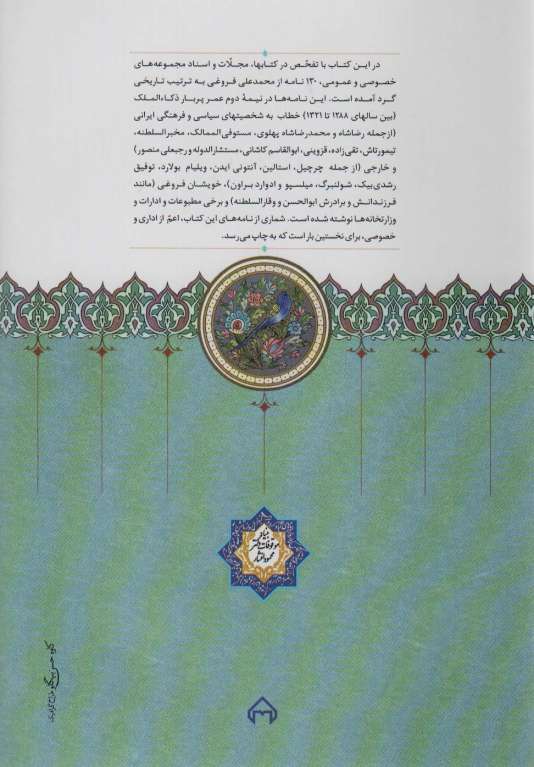 در این کتاب با تفحّص در کتابها، مجلّات و اسناد مجموعه‌های
خصوصی و عمومی، ۱۳۰ نامه از محمدعلی فروغی به ترتیب تاریخی
گرد آمده است. این نامه‌ها در نیمهٔ دوم عمر پربار ذکاءالملک
(بین سالهای ۱۲۸۸ تا ۱۳۲۱) خطاب به شخصیتهای سیاسی و فرهنگی ایرانی
(ازجمله رضاشاه و محمدرضاشاه پهلوی، مستوفی‌الممالک، مخبرالسلطنه،
تیمورتاش، تقی‌زاده، قزوینی، ابوالقاسم کاشانی، مستشارالدوله و رجبعلی منصور)
و خارجی (از جمله چرچیل، استالین، آنتونی ایدن، ویلیام بولارد، توفیق
رشدی‌بیک، شولنبرگ، میلسپو و ادوارد براون)، خویشان فروغی (مانند
فرزندانش و برادرش ابوالحسن و وقارالسلطنه) و برخی مطبوعات و ادارات و
وزارتخانه‌ها نوشته شده است. شماری از نامه‌های این کتاب، اعمّ از اداری و
خصوصی، برای نخستین بار است که به چاپ می‌رسد.
بنیاد
موقوفات دکتر
محمود افشار
کاوه حسن‌بیگلو طراح گرافیک